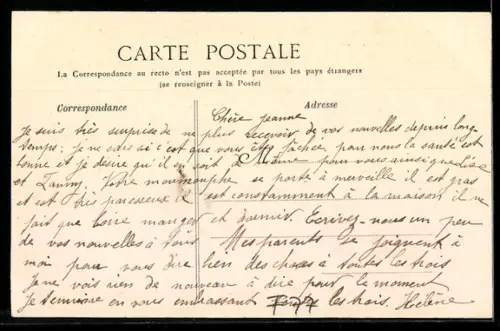 CARTE POSTALE
La Correspondance au recto n'est pas acceptée par tous les pays étrangers
(se renseigner à la Poste)
Correspondance
Adresse
Chère Jeanne
Je suis très surprise de ne plus recevoir de vos nouvelles depuis long
temps; je ne sais si c'est que vous êtes fâchée, pour nous la santé est
bonne et je désire qu'il en soit de même pour vous ainsi que
et Fanny. Votre se porte à merveille il est gras
et est très paresseux il est constamment à la maison il ne
fait que boire manger et dormir. Ecrivez-nous un peu
de vos nouvelles à tous Mes parents se joignent à
moi pour vous dire bien des choses à toutes les trois
Je ne vois rien de nouveau à dire pour le moment
Je termine en vous embrassant toutes les trois. Hélène